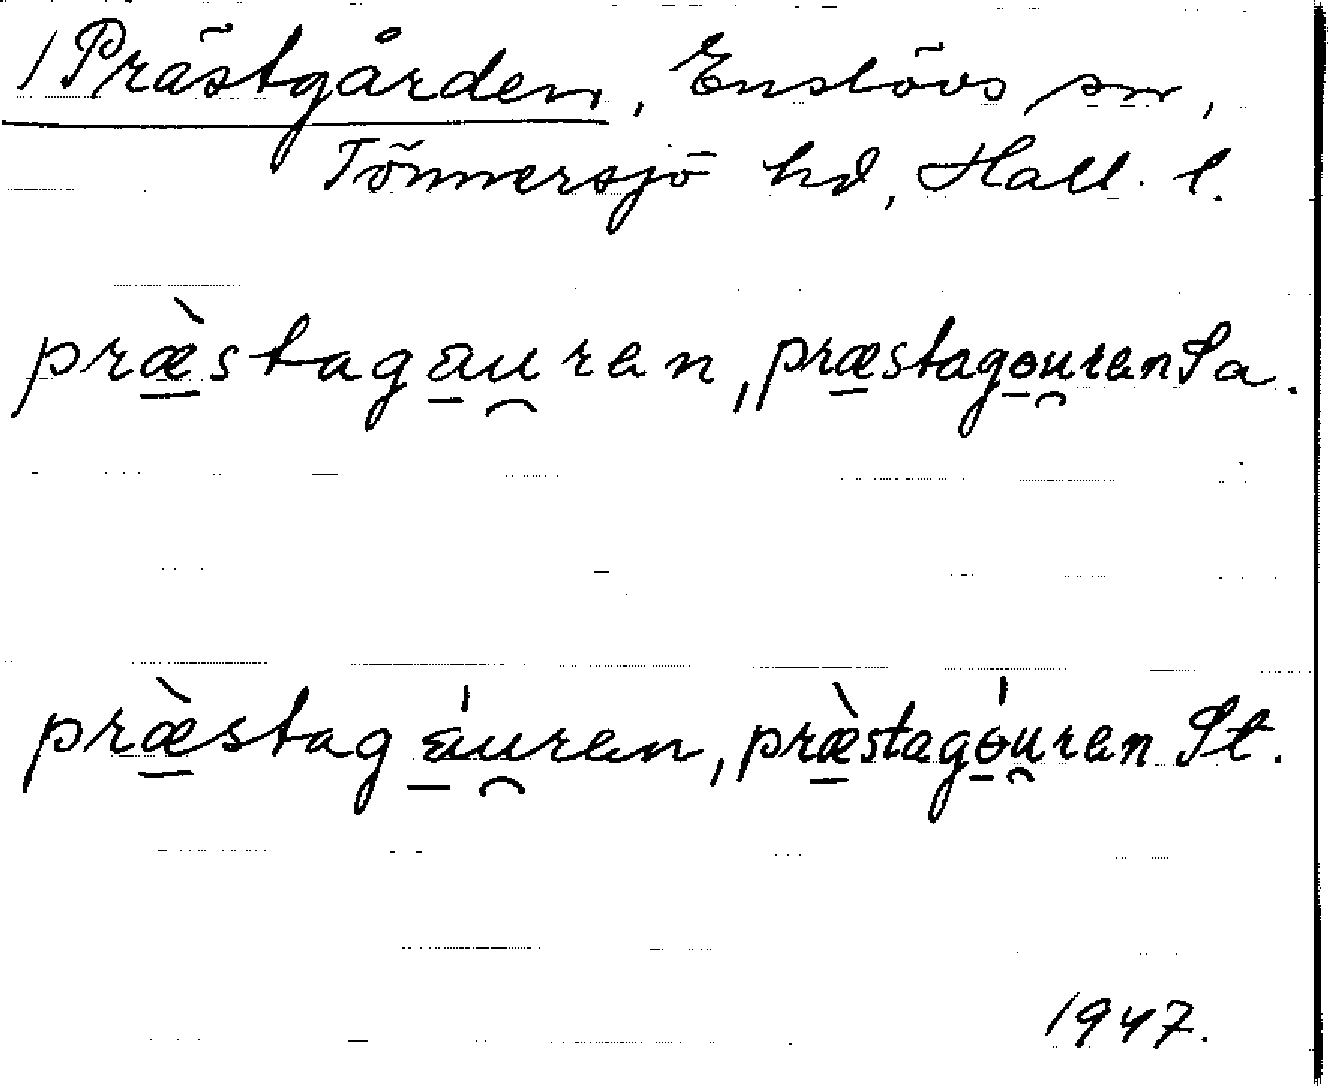 /Prästgården, Enslövs sn,
Tönnersjö hd, Hall. l.
præ̀stagauren, præstagouren Sa.
præ̀stagáuren, præ̀stagóuren St.
1947.